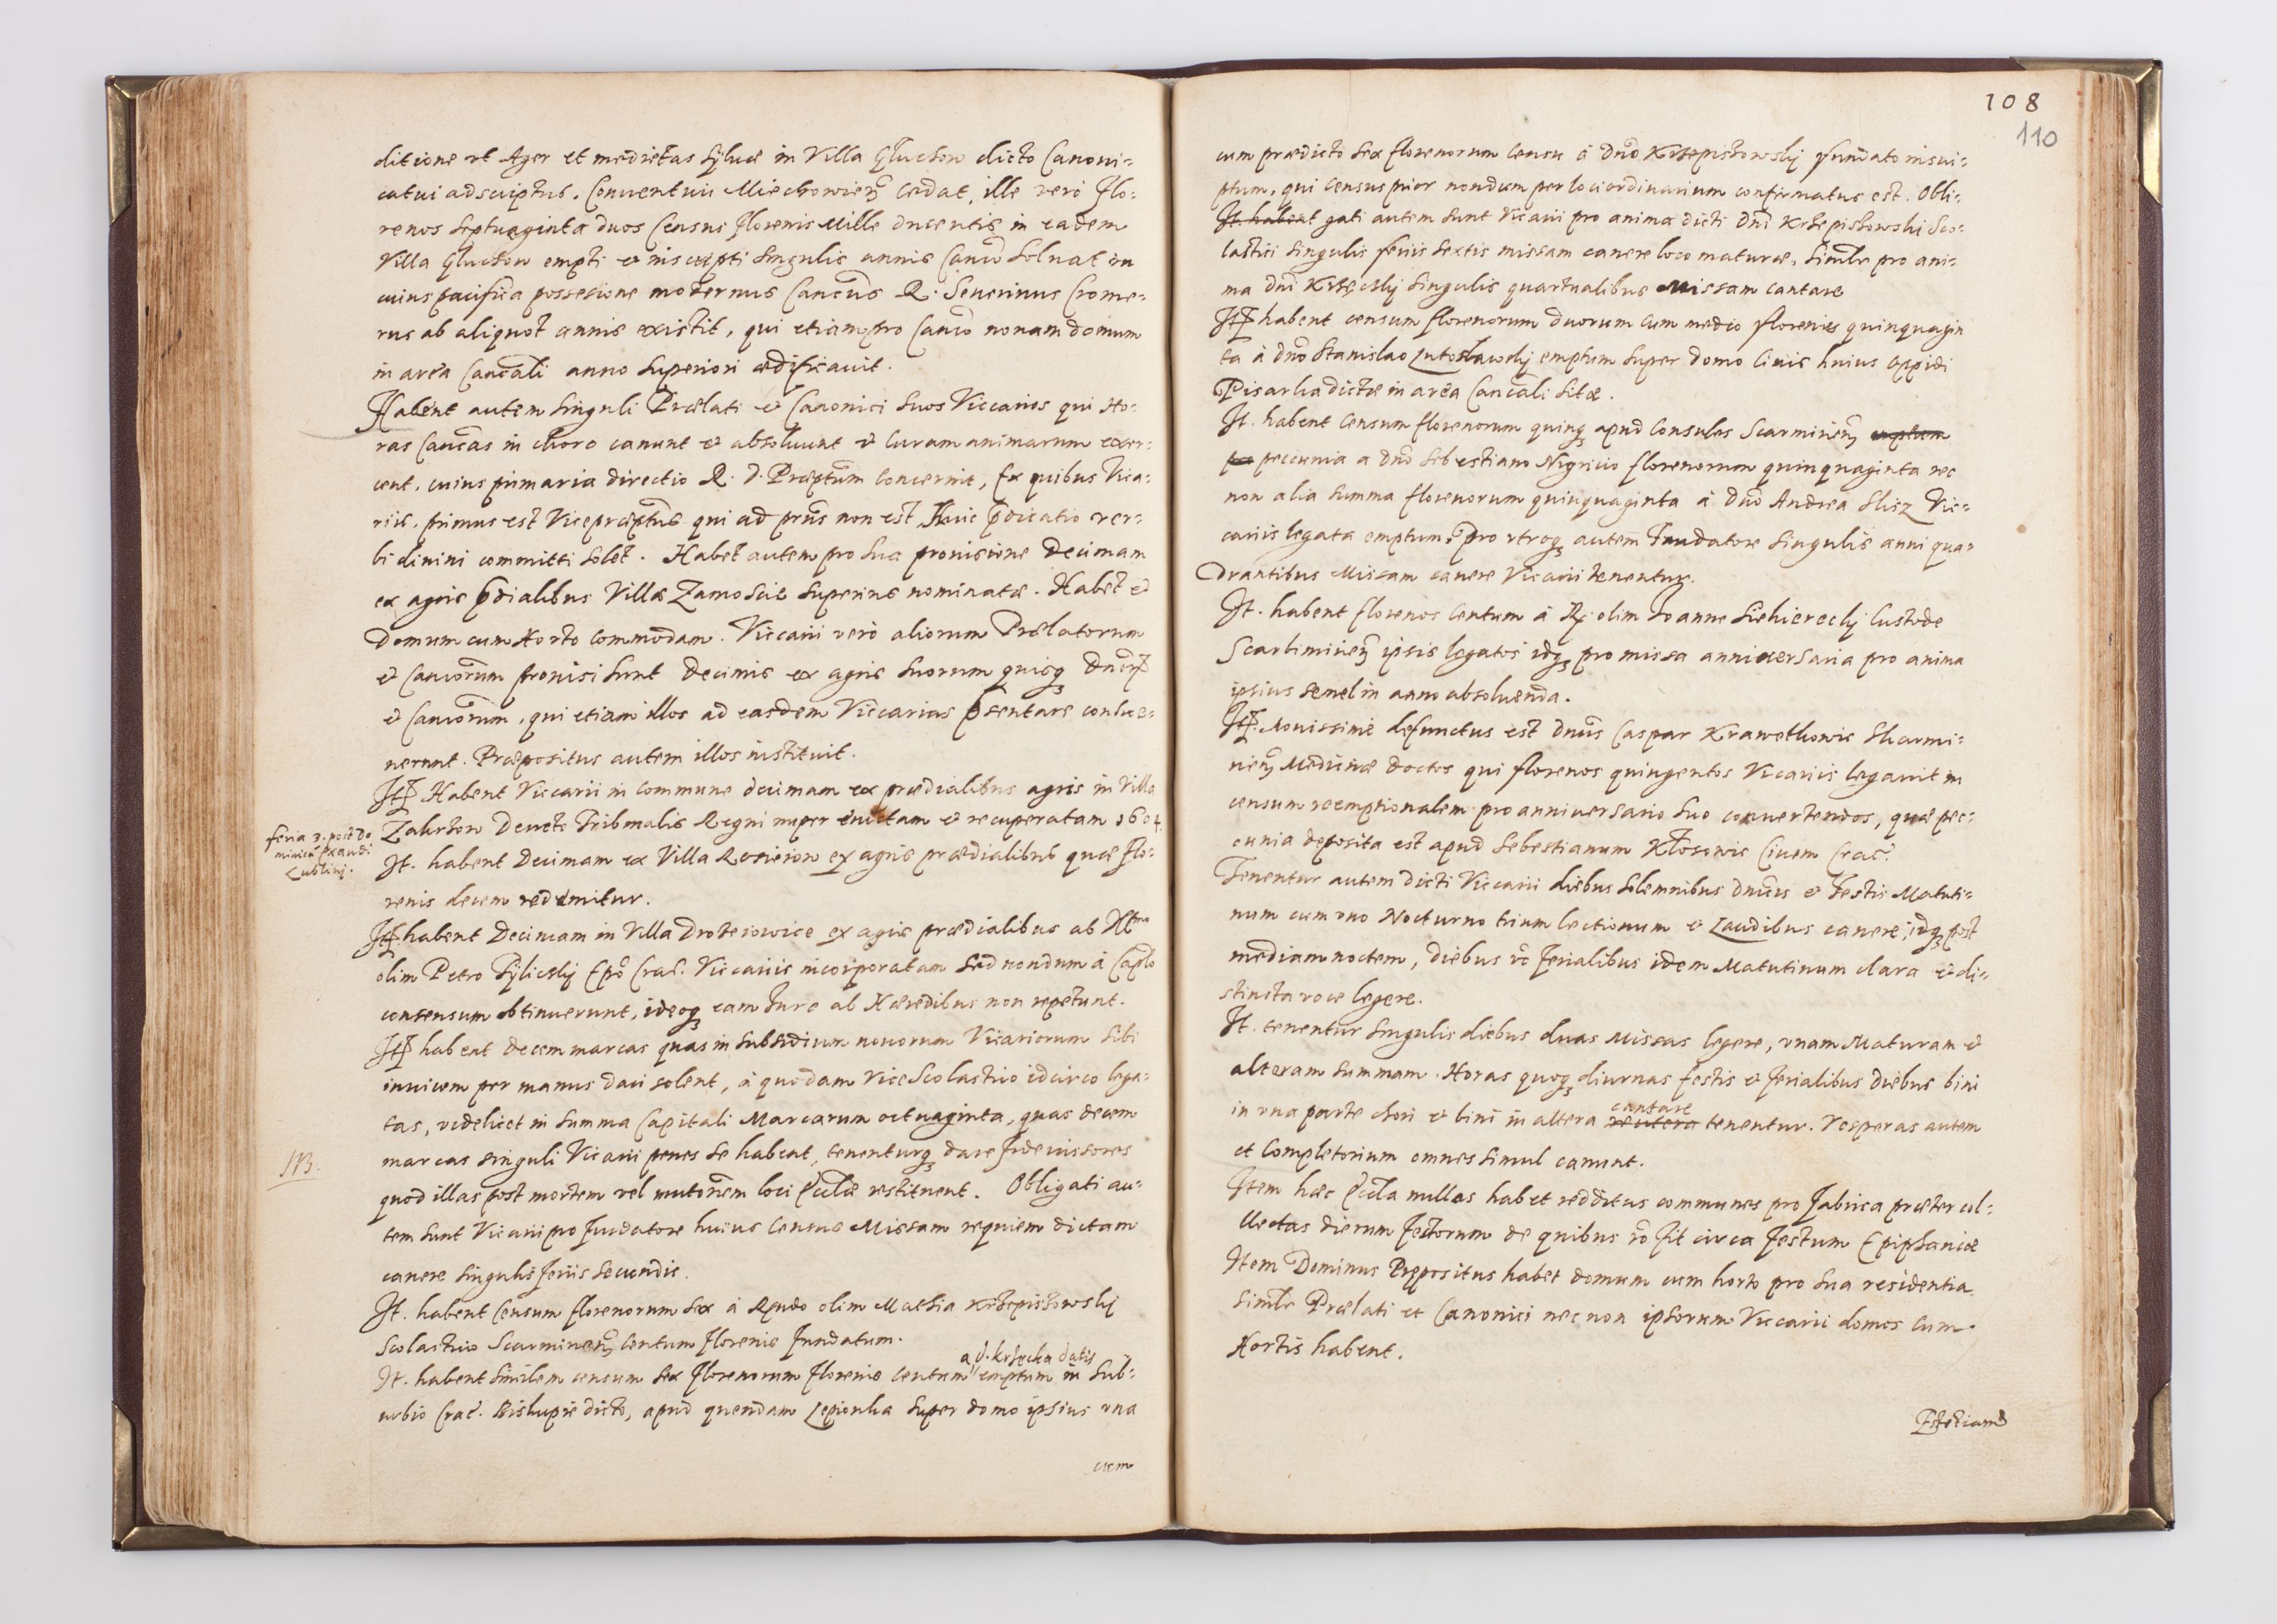 ditione vt Ager et medietas syluæ in Villa Gluchow dicto Canoni-
catui adscriptus, Conuentui Miechowien̄ cedat, ille verò Flo-
renos septuaginta duos Census Florenis Mille ducentis in eadem
Villa Gluchow empti et inscripti singulis annis Canco soluat in
cuius pacifica possesione modernus Cancus R. Seuerinus Crome-
rus ab aliquot annis existit, qui etiam pro Canco nonam domum
in area Cancali anno superiori ædificauit.
Habent autem singuli Prælati et Canonici suos Viccarios qui Ho-
ras Cancas in choro canunt et absoluunt et Curam animarum exer-
cent, cuius primaria directio R. D. Præptum concernit, Ex quibus Vica-
riis, primus est Vicepræptus qui ad prns non est, Huic prdicatio ver-
bi diuini committi solet. Habet autem pro sua prouisione Decimam
ex agris prdialibus Villæ Zamoscie superius nominatæ. Habet et
Domum cum Horto commodam. Viccarii verò aliorum Prælatorum
et Cancorum prouisi sunt Decimis ex agris suorum quisq Dnorum
et Cancorum, qui etiam illos ad easdem Viccarias prsentare consue-
uerunt. Præpositus autem illos instituit.
Itē Habent Viccarii in commune decimam ex prædialibus agris in Villa
feria 3. post Do
minicā Exaudi
Lublinj.
Zakrzow Decreto Tribunalis Regni nuper euictam et recuperatam 1604.
It. habent Decimam ex Villa Rosieiow ex agris prædialibus quæ Flo-
renis decem redimitur.
Itē habent Decimam in Villa Drozeiowice ex agris prædialibus ab Illmo
olim Petro Tyliczkj Epō Crac. Viccariis incorporatam sed nondum à Caplo
consensum obtinuerunt, ideoq eam Iure ab Hæredibus non repetunt.
Itē habent decem marcas quas in subsidium nouorum Vicariorum sibi
inuicem per manus dari solent, à quodam Vice Scolastico idcirco lega-
tas, videlicet in summa Capitali Marcarum octuaginta, quas decem
NB.
marcas singuli Vicarii penes se habeat, tenenturq dare fideiussores
quod illas post mortem vel mutonem loci Ecclæ restituent. Obligati au-
tem sunt Vicarii pro fundatore huius Census Missam requiem dictam
canere singulis feriis secundis.
It. habent Censum florenorum sex à Rndo olim Mathia Krzepiczowskj
Scolastico Scarmirien̄ centum florenis fundatum.
a d. krzęcka datis
It. habent similem censum sex florenorum florenis centum emptum in sub-
urbio Crac. Biskupie dicto, apud quendam Lepionka super domo ipsius vna
cum
108
110
cum prædicto sex florenorum censu à Dnō Krzepiczowskj fundato inscri-
ptum, qui census prior nondum per loci ordinarium confirmatus est. Obli-
It. habent gati autem sunt Vicarii pro anima dicti Dni Krzepiczowski Sco-
lastici singulis feriis sextis missam canere loco maturæ, similr pro ani-
ma dni Krzęckj singulis quartualibus Missam cantare
Itē habent censum florenorum duorum cum medio florenis quinquagin
ta à Dnō Stanislao Lutoslawskj emptum super domo Ciuis huius oppidi
Pisarka dictæ in area Cancali sitæ.
It. habent Censum florenorum quinq apud Consules Scarmirien̄ emptum
pec peccunia a Dno Sebestiano Nigricio florenorum quinquaginta nec
non alia summa florenorum quinquaginta à Dnō Andrea Sliz Vic-
cariis legata emptum, pro vtroq autem Fundatore singulis anni qua-
Drantibus Missam canere Vicarii tenentur.
It. habent florenos Centum à R. olim Ioanne Siekiereckj Custode
Scarbimirien̄ ipsis legatos idq pro missa anniuersaria pro anima
ipsius semel in anno absoluenda.
Itē. Nouissime defunctus est Dnus Caspar Krawethowic Skarmi-
rien̄ Medicinæ Doctor qui florenos quingentos Vicariis legauit in
censum reemptionalem pro anniuersario suo conuertendos, quæ pec-
cunia deposita est apud Sebestianum Kłosowic Ciuem Crac.
Tenentur autem dicti Viccarii diebus solemnibus Dnicis et Festis Matuti-
num cum vno Nocturno trium lectionum et Laudibus canere, idq post
mediam noctem, diebus vō ferialibus idem Matutinum clara et di-
stincta voce legere.
It. tenentur singulis diebus duas Missas legere, vnam Maturam et
alteram summam. Horas quoq diurnas festis et ferialibus diebus bini
cantare
in vna parte chori et bini in altera tenentur. Vesperas autem
et Completorium omnes simul canunt.
Item hæc Eccla nullos habet redditus communes pro fabrica præter col-
llectas dierum festorum de quibus rō fit circa festum Epiphaniæ
Item Dominus Præpositus habet domum cum horto pro sua residentia
similr Prælati et Canonici nec non ipsorum Viccarii domos cum
Hortis habent.
Est etiam